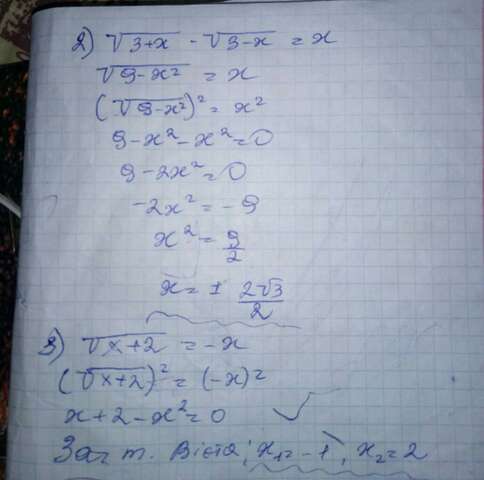 2) √3+x · √3-x = x
√9-x² = x
(√9-x²)² = x²
9-x²-x²=0
9-2x²=0
-2x² = -9
x² = 9/2
x = ± 2√3/2
3) √x+2 = -x
(√x+2)² = (-x)²
x+2-x²=0 ✓
За т. Вієта; x₁=-1, x₂=2